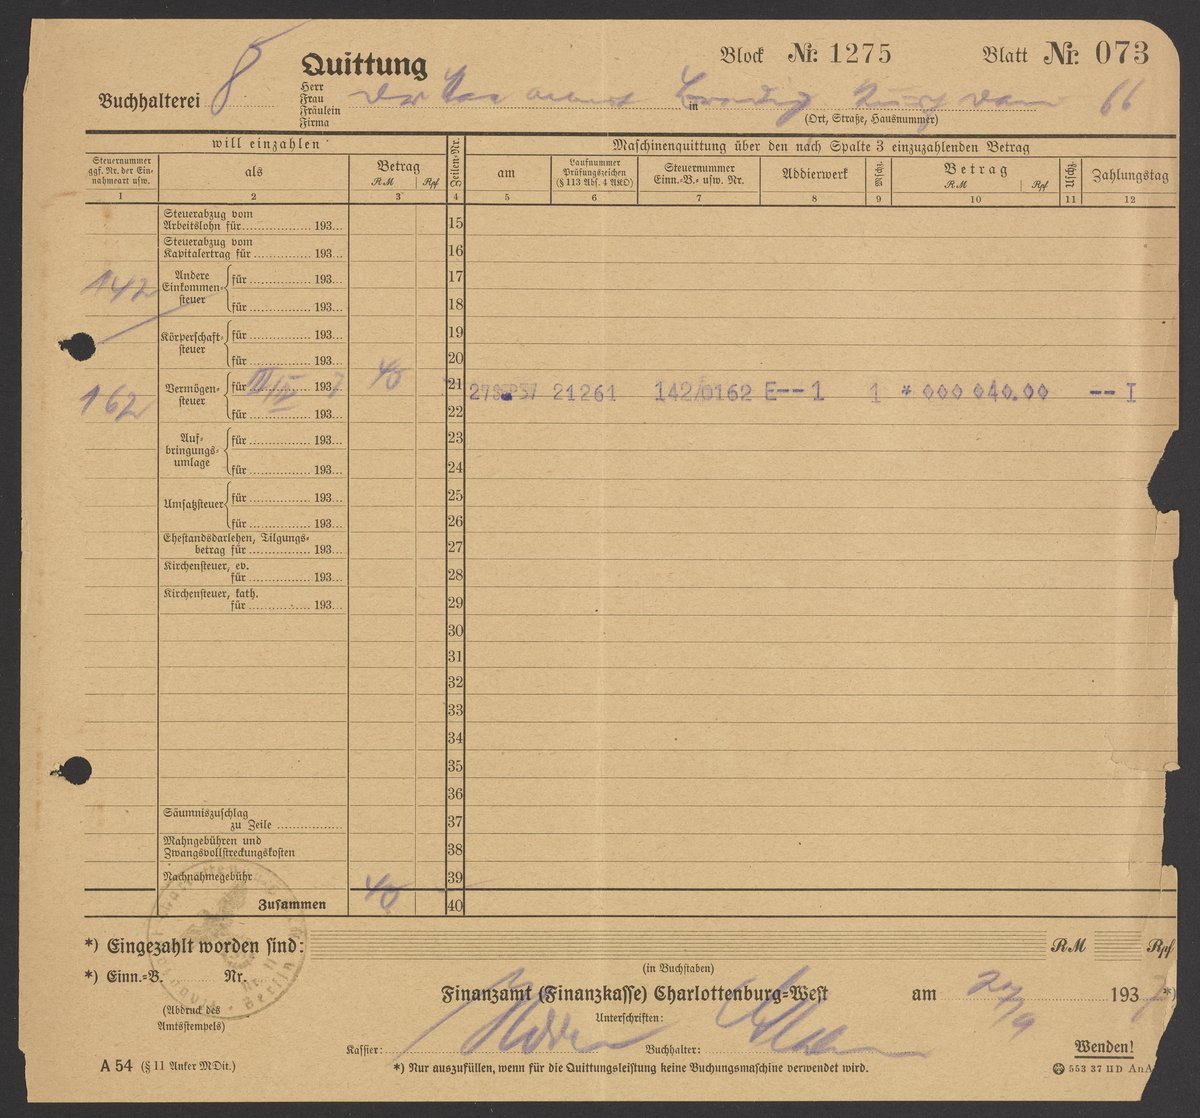 Quittung
Block Nr. 1275
Blatt Nr. 073
Buchhalterei 8
Herr
Frau
Fräulein
Firma
in
66
(Ort, Straße, Hausnummer)
will einzahlen
Maschinenquittung über den nach Spalte 3 einzuzahlenden Betrag
Steuernummer ggf. Nr. der Ein-nahmeart usw.
als
Betrag
RM Rpf
Zeilen-Nr.
am
Laufnummer Prüfungszeichen (§ 113 Abs. 4 AKO)
Steuernummer Einn.-B.- usw. Nr.
Addierwerk
Mschz.
Betrag
RM Rpf
Uschz.
Zahlungstag
1 2 3 4 5 6 7 8 9 10 11 12
Steuerabzug vom
Arbeitslohn für 193 15
Steuerabzug vom
Kapitalertrag für 193 16
142 Andere Einkommen-steuer für 193 17
für 193 18
Körperschaft-steuer für 193 19
für 193 20
162 Vermögen-steuer für III/IV 1937 40 21 27SEP37 21261 142/0162 E--1 1 * 000 040.00 -- I
für 193 22
Auf-bringungs-umlage für 193 23
für 193 24
Umsatzsteuer für 193 25
für 193 26
Ehestandsdarlehen, Tilgungs-
betrag für 193 27
Kirchensteuer, ev.
für 193 28
Kirchensteuer, kath.
für 193 29
30
31
32
33
34
35
36
Säumniszuschlag
zu Zeile 37
Mahngebühren und
Zwangsvollstreckungskosten 38
Nachnahmegebühr 39
Zusammen 40 40
*) Eingezahlt worden sind: RM Rpf
(in Buchstaben)
*) Einn.-B. Nr.
(Abdruck des
Amtsstempels)
Finanzamt (Finanzkasse) Charlottenburg-West am 27/9 1937 *)
Unterschriften:
Kassier: Buchhalter:
Wenden!
A 54 (§ 11 Anker MDit.)
*) Nur auszufüllen, wenn für die Quittungsleistung keine Buchungsmaschine verwendet wird.
553 37 IID AnA